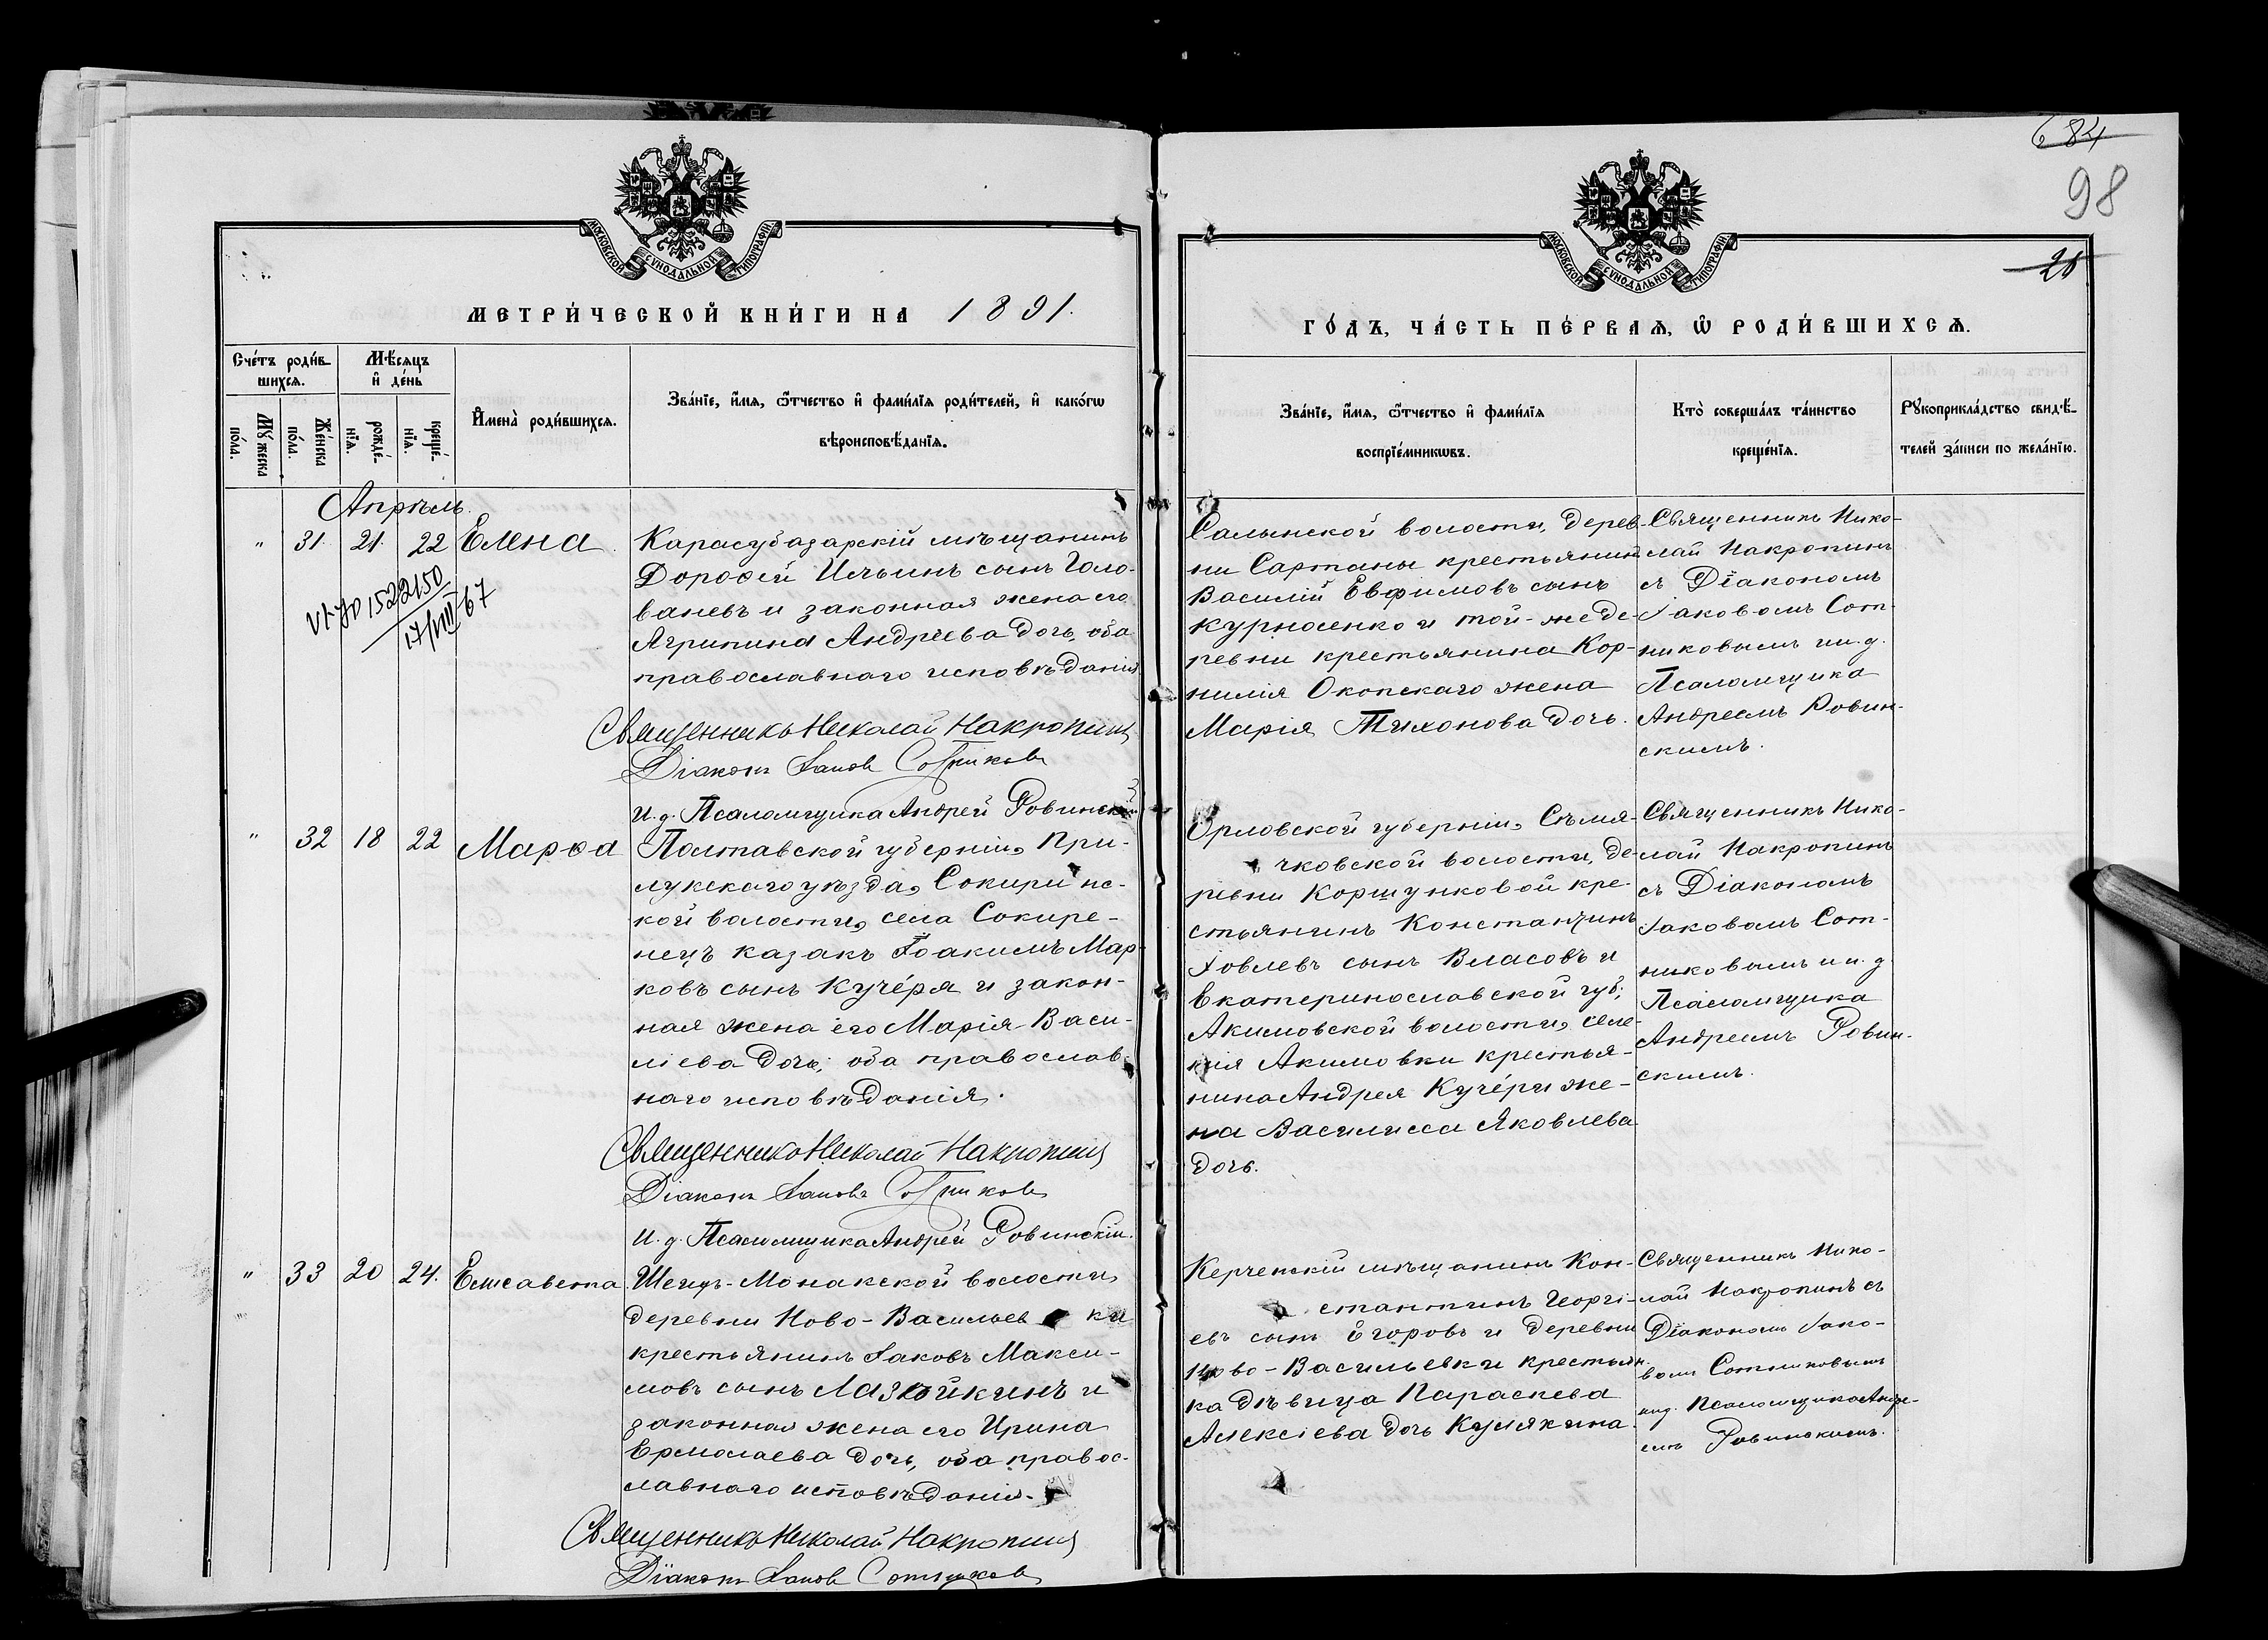 684
98
МОСКОВСКОЙ СѴНОДАЛЬНОЙ ТИПОГРАФІИ
МОСКОВСКОЙ СѴНОДАЛЬНОЙ ТИПОГРАФІИ
МЕТРИ́ЧЕСКОЙ КНИ́ГИ НА 1891.
ГО́ДЪ, ЧА́СТЬ ПЕ́РВАѦ, Ѽ РОДИ́ВШИХСѦ.
Сче́тъ роди́в-
шихсѧ.
Мѹ́жеска
по́ла.
Же́нска
по́ла.
Мѣ́сѧцъ
и҆ де́нь
рожде́-
нїѧ.
креще́-
нїѧ.
И҆мена̀ роди́вшихсѧ.
Зва́нїе, и҆́мѧ, ѻ҆́тчество и҆ фами́лїѧ роди́телей, и҆ како́гѡ
вѣроисповѣ́данїѧ.
Зва́нїе, и҆́мѧ, ѻ҆́тчество и҆ фами́лїѧ
воспрїе́мникѡвъ.
Кто̀ соверша́лъ та́инство
креще́нїѧ.
Рꙋкоприкла́дство свидѣ́-
телей за́писи по жела́нїю.
Апрѣль.
" 31. 21. 22 Елена.
VI-ЯО 1522150
17/VIII 67
Карасубазарскій мѣщанинъ
Дороѳей Ильинъ сынъ Голо-
ваневъ и законная жена его
Агрипина Андреева дочь, оба
православнаго исповѣданія
Священникъ Николай Накропинъ
Діаконъ Іаковъ Сотниковъ
И. д. Псаломщика Андрей Ровинскій
Салынской волости, дерев-
ни Сартаны крестьянинъ
Василій Евфимовъ сынъ
Курносенко и той-же де-
ревни крестьянина Кор-
нилія Окопскаго жена
Марія Тихонова дочь.
Священникъ Нико-
лай Накропинъ
съ Діакономъ
Іаковомъ Сот-
никовымъ и и. д.
Псаломщика
Андреемъ Ровин-
скимъ.
" 32 18 22 Марѳа
Полтавской губерніи, При-
лукскаго уѣзда, Сокиринс-
кой волости, села Сокире-
нецъ казакъ Іоакимъ Мар-
ковъ сынъ Кучéря и закон-
ная жена его Марія Васи-
ліева дочь, оба православ-
наго исповѣданія.
Священникъ Николай Накропинъ
Діаконъ Іаковъ Сотниковъ
И. д. Псаломщика Андрей Ровинскій.
Орловской губерніи, Сѣмя-
чковской волости, де-
ревни Коршунковой кре-
стьянинъ Константинъ
Іовлевъ сынъ Власовъ и
Екатеринославской губ;
Акимовской волости, селе-
нія Акимовки крестья-
нина Андрея Кучéри же-
на Василисса Яковлева
дочь.
Священникъ Нико-
лай Накропинъ
съ Діакономъ
Іаковомъ Сот-
никовымъ и и. д.
Псаломщика
Андреемъ Ровин-
скимъ.
" 33 20 24. Елисавета
Шеихъ-Монакской волости,
деревни Ново-Васильевки
крестьянинъ Іаковъ Макси-
мовъ сынъ Лазойкинъ и
законная жена его Ирина
Ермолаева дочь, оба правос-
лавнаго исповѣданія.
Священникъ Николай Накропинъ
Діаконъ Іаковъ Сотниковъ
Керченскій мѣщанинъ Кон-
стантинъ Георгі-
евъ сынъ Егоровъ и деревни
Ново-Васильевки крестьян-
ка дѣвица Параскева
Алексіева дочь Кулякина.
Священникъ Нико-
лай Накропинъ съ
Діакономъ Іако-
вомъ Сотниковымъ
и и. д. Псаломщика Андре-
емъ Ровинскимъ.